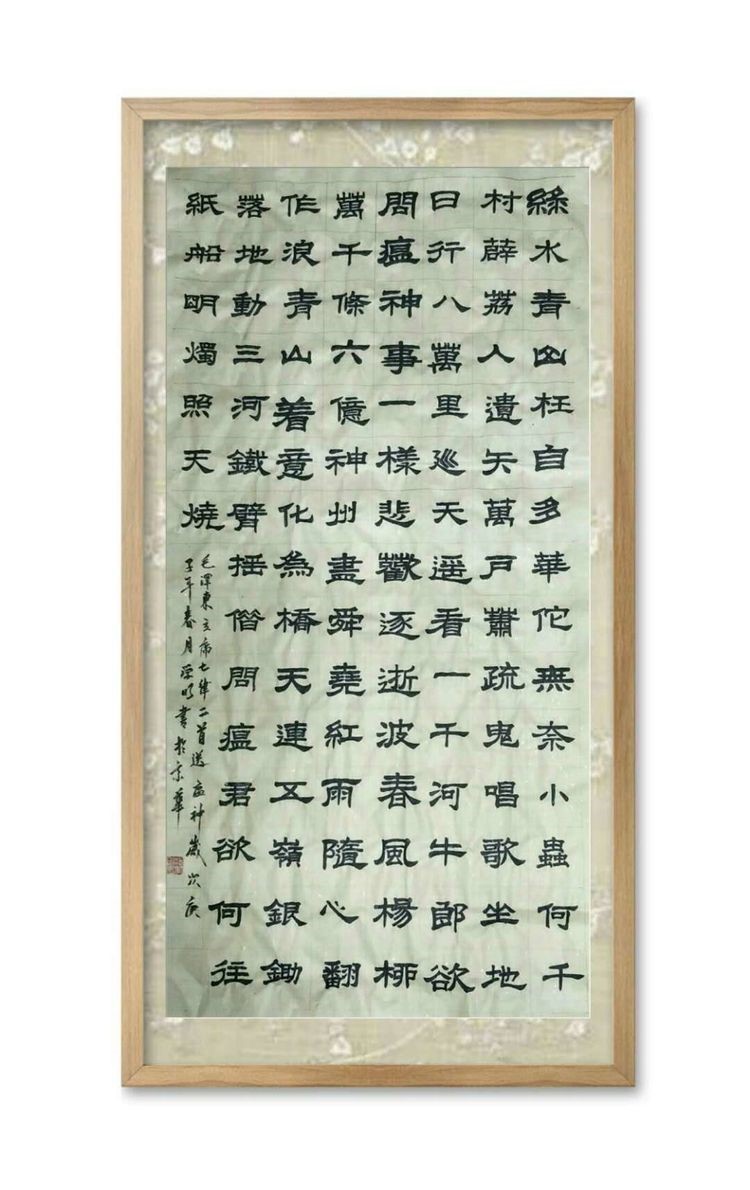 絲水青山枉自多華佗無奈小蟲何千
村薜荔人遺矢萬戶蕭疏鬼唱歌坐地
日行八萬里巡天遥看一千河牛郎欲
問瘟神事一樣悲歡逐逝波春風楊柳
萬千條六億神州盡舜堯紅雨隨心翻
作浪青山着意化為橋天連五嶺銀鋤
落地動三河鐵臂摇借問瘟君欲何往
紙船明燭照天燒
毛澤東主席七律二首送瘟神歲次庚
子年春月 明書於京華